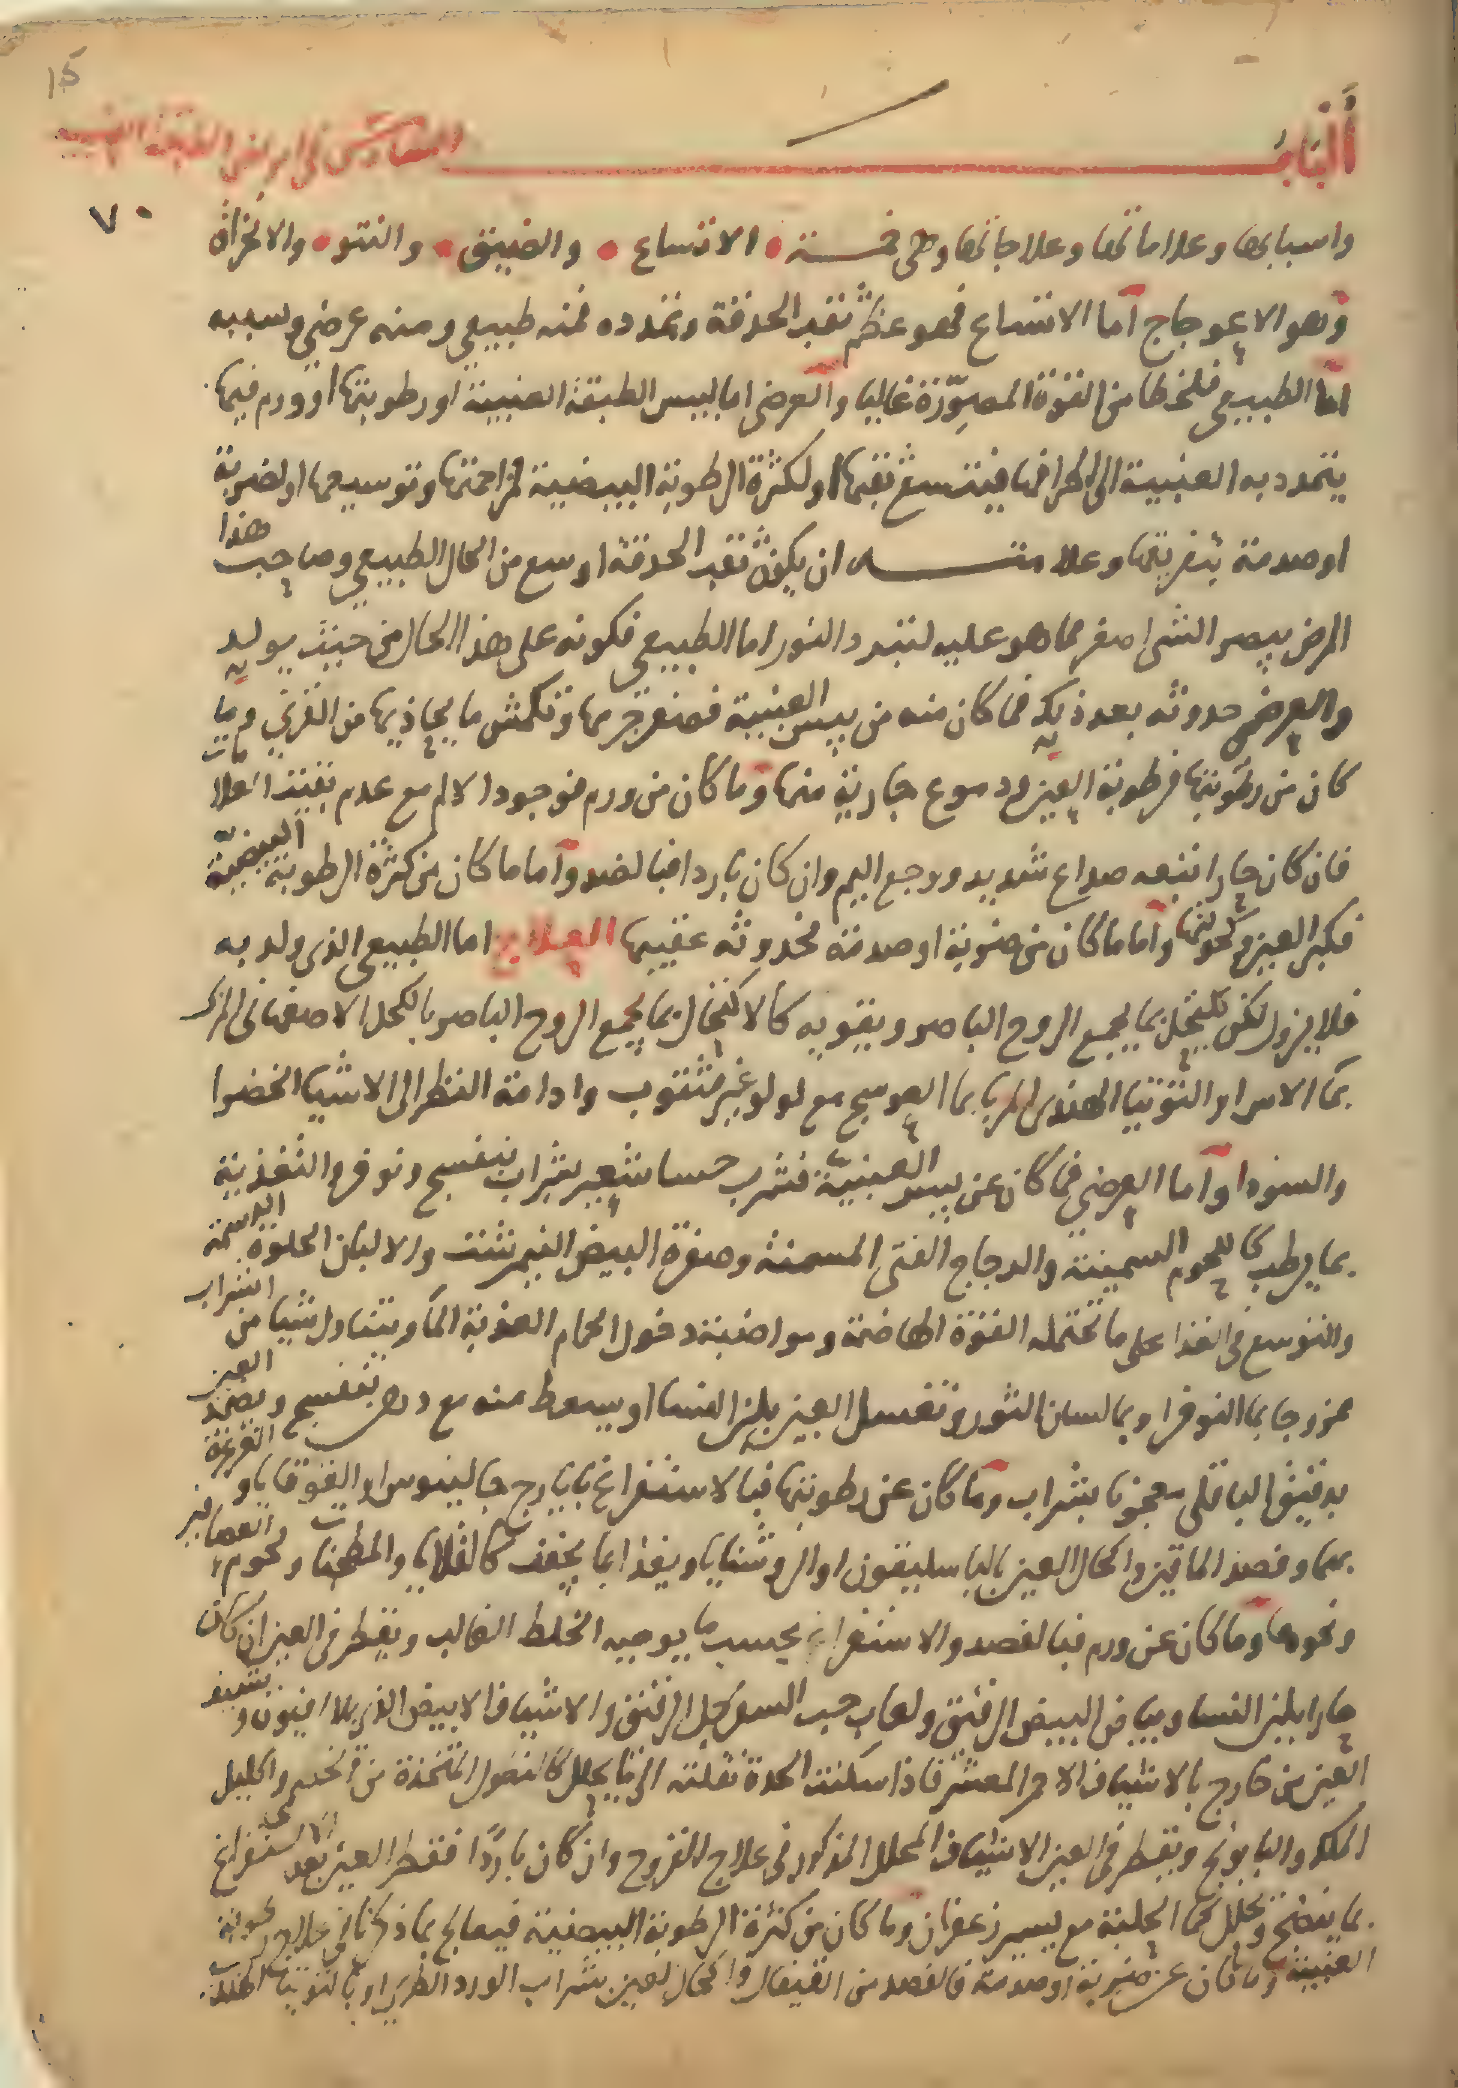 15
الباب السادس في امراض الطبقة العنبية
٧٠
واسبابها وعلاماتها وعلاجاتها وهي خمسة الاتساع والضيق والنتو والانخراق
وهو الاعوجاج اما الاتساع فهو عظم ثقب الحدقة وتمدده فمنه طبيعي ومنه عرضي وسببه
اما الطبيعي فلخطا من القوة المصورة غالبا والعرضي اما ليبس الطبقة العنبية او رطوبتها او ورم فيها
يتمدد به العنبية الى اطرافها فيتسع ثقبها او لكثرة الرطوبة البيضية لمزاحمتها وتوسيعها او لضربة
او صدمة بتفريقها وعلامته ان يكون ثقب الحدقة اوسع من الحال الطبيعي وصاحب هذا
المرض يبصر الشي اصغر مما هو عليه لتبدد النور اما الطبيعي فكونه على هذا الحال من حيث يولد
والعرضي حدوثه بعد ذلك فما كان منه من يبس العنبية فصغر جرمها وتكمش ما يحاذيها من القرني وما
كان من رطوبتها فرطوبة العين ودموع جارية منها وما كان من ورم فوجود الالم مع عدم بقية العلامات
فان كان حارا تبعه صداع شديد ووجع اليم وان كان باردا فبالضد واما ما كان من كثرة الرطوبة البيضية
فكبر العين وكحولتها واما ما كان من ضربة او صدمة فحدوثه عقيبها العلاج اما الطبيعي الذي ولد به
فلا يزول لكن يكتحل بما يجمع الروح الباصر ويقويه كالاكتحال بما يجمع الروح الباصر بالكحل الاصفهاني المربى
بما الاس او التوتيا الهندي المربا بما العوسج مع لولو غير مثقوب وادامة النظر الى الاشيا الخضرا
والسودا واما العرضي فما كان عن يبس العنبية فشرب حسا شعير بشراب بنفسج ونوفر والتغذية
بما يرطب كاللحوم السمينة والدجاج الفتى المسمنة وصفرة البيض النيمرشت والالبان الحلوة الدسمة
والتوسع في الغذا على ما تحتمله القوة الهاضمة ومواضبة دخول الحمام العذبة الما ويتناول شيا من الشراب
ممزوجا بما النوفر او بما لسان الثور وتغسل العين بلبن النسا او يسعط منه مع دهن بنفسج ويضمد العين
بدقيق الباقلى معجونا بشراب وما كان عن رطوبتها فبالاستفراغ بايارج جالينوس او القوقايا والغرغرة
بهما وفصد الماقين واكحال العين بالباسليقون او الروشنايا ويغذا بما يجفف كالقلايا والمطجنا ولحوم العصافير
ونحوها وما كان عن ورم فبالفصد والاستفراغ بحسب ما يوجبه الخلط الغالب ويقطر في العين ان كان
حارا بلبن النسا وبياض البيض الرقيق ولعاب حب السفرجل الرقيق والاشياف الابيض الذي بلا افيون ويشيف
العين من خارج بالاشياف الاحمر المعشر فاذا سكنت الحدة نقلته الى ما يحلل كالنطول المتخذة من واكليل
الملك والبابونج ويقطر في العين الاشياف المحلل المذكور في علاج القروح وان كان باردا فقطر العين بعد الاستفراغ
بما ينضج ويحلل كما الحلبة مع يسير زعفران وما كان من كثرة الرطوبة البيضية فيعالج بما ذكرنا في علاج رطوبة
العنبية وما كان عن ضربة او صدمة فالفصد من القيفال واكحال العين بشراب الورد الطري او بالتوتيا